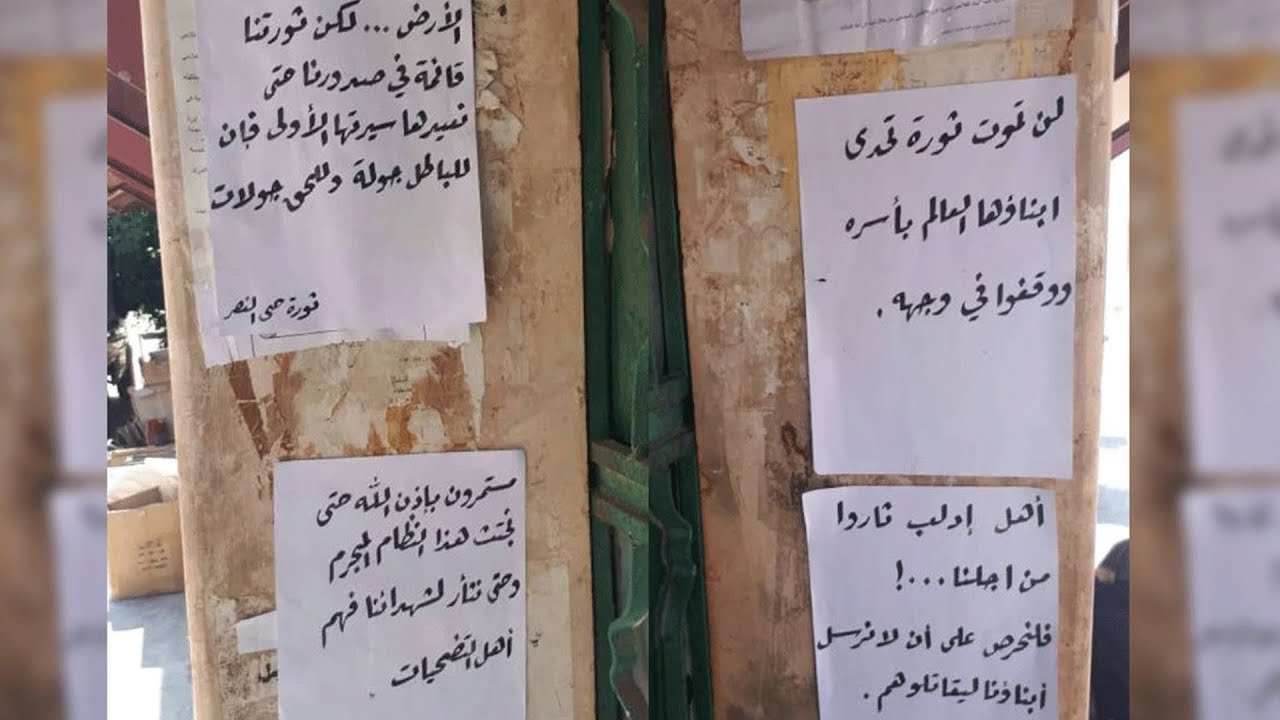 الأرض ... لكن ثورتنا
قائمة في صدورنا حتى
نعيدها سيرتها الأولى فإن
للباطل جولة وللحق جولات
ثورة حتى النصر
مستمرون بإذن الله حتى
نجتث هذا النظام المجرم
وحتى نثأر لشهدائنا فهم
أهل التضحيات
لن تموت ثورة تحدى
ابناؤها العالم بأسره
ووقفوا في وجهه .
أهل إدلب ثاروا
من اجلنا ...!
فلنحرص على أن لا نرسل
أبناؤنا ليقاتلوهم .